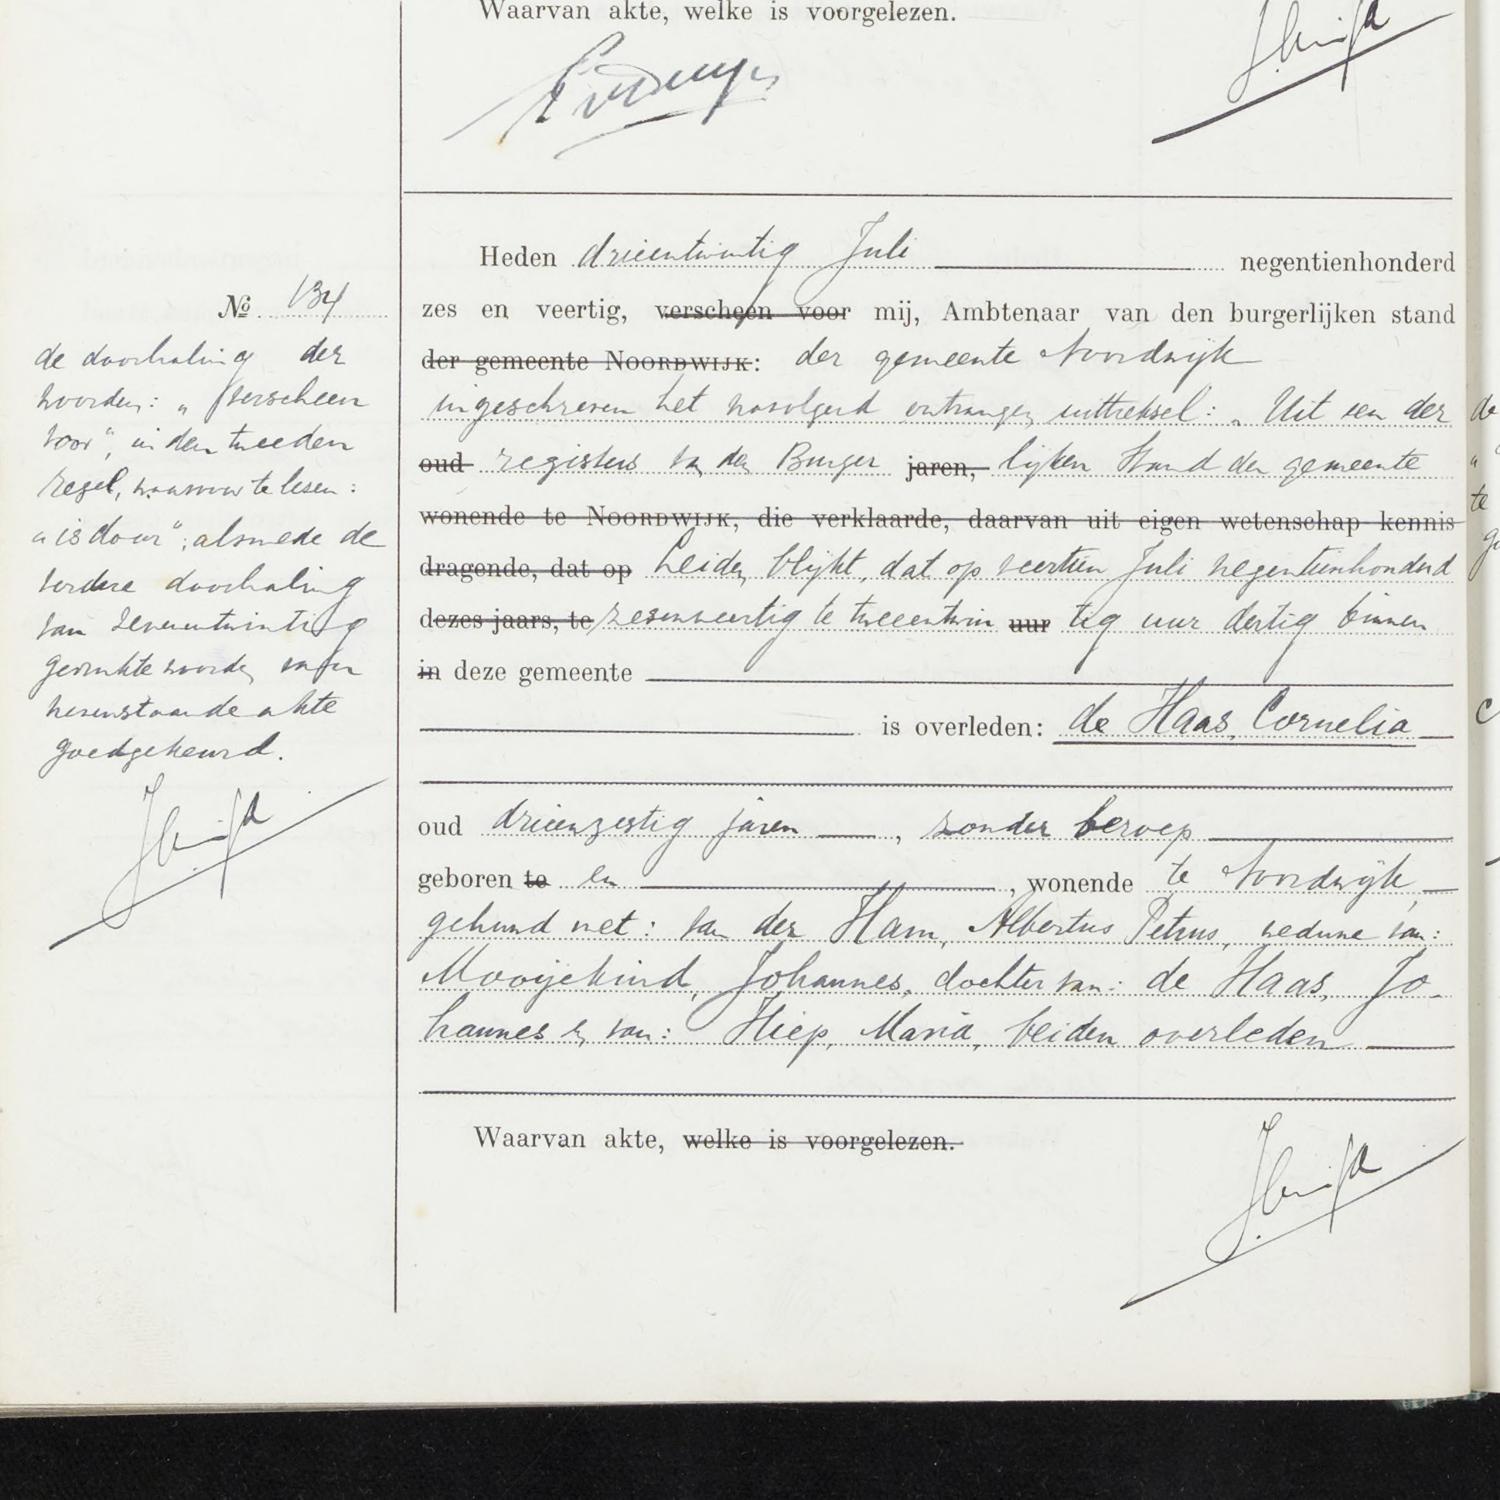 Waarvan akte, welke is voorgelezen.
Heden drieentwintig Juli negentienhonderd
No 134
zes en veertig, verscheen voor mij, Ambtenaar van den burgerlijken stand
der gemeente Noordwijk: der gemeente Noordwijk
ingeschreven het navolgend ontvangen uittreksel: „Uit een der
oud registers van den Burger jaren, lijken Stand der gemeente
wonende te Noordwijk, die verklaarde, daarvan uit eigen wetenschap kennis
dragende, dat op Leiden blijkt, dat op veertien Juli negentienhonderd
dezes jaars, te zesenveertig te tweeentwin uur tig uur dertig binnen
in deze gemeente
is overleden: de Haas, Cornelia
oud drieenzestig jaren, zonder beroep
geboren te en, wonende te Noordwijk,
gehuwd met: van der Ham, Albertus Petrus, weduwe van:
Mooijekind, Johannes, dochter van: de Haas, Jo-
hannes en van: Hiep, Maria, beiden overleden
Waarvan akte, welke is voorgelezen.
de doorhaling der
woorden: „verscheen
voor", in den tweeden
regel, waarvoor te lesen:
„is door"; alsmede de
verdere doorhaling
van zevenentwintig
gedrukte woorden in
nevenstaande akte
goedgekeurd.